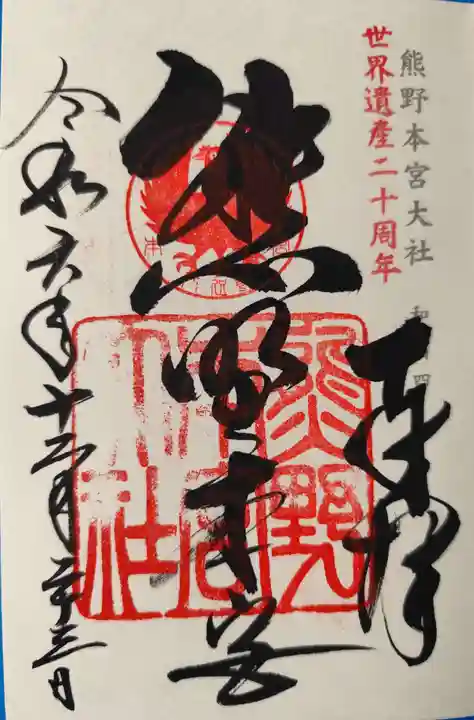 熊野本宮大社
世界遺産二十周年
奉拝
熊野本宮
令和六年十二月二十三日
熊野本宮大社